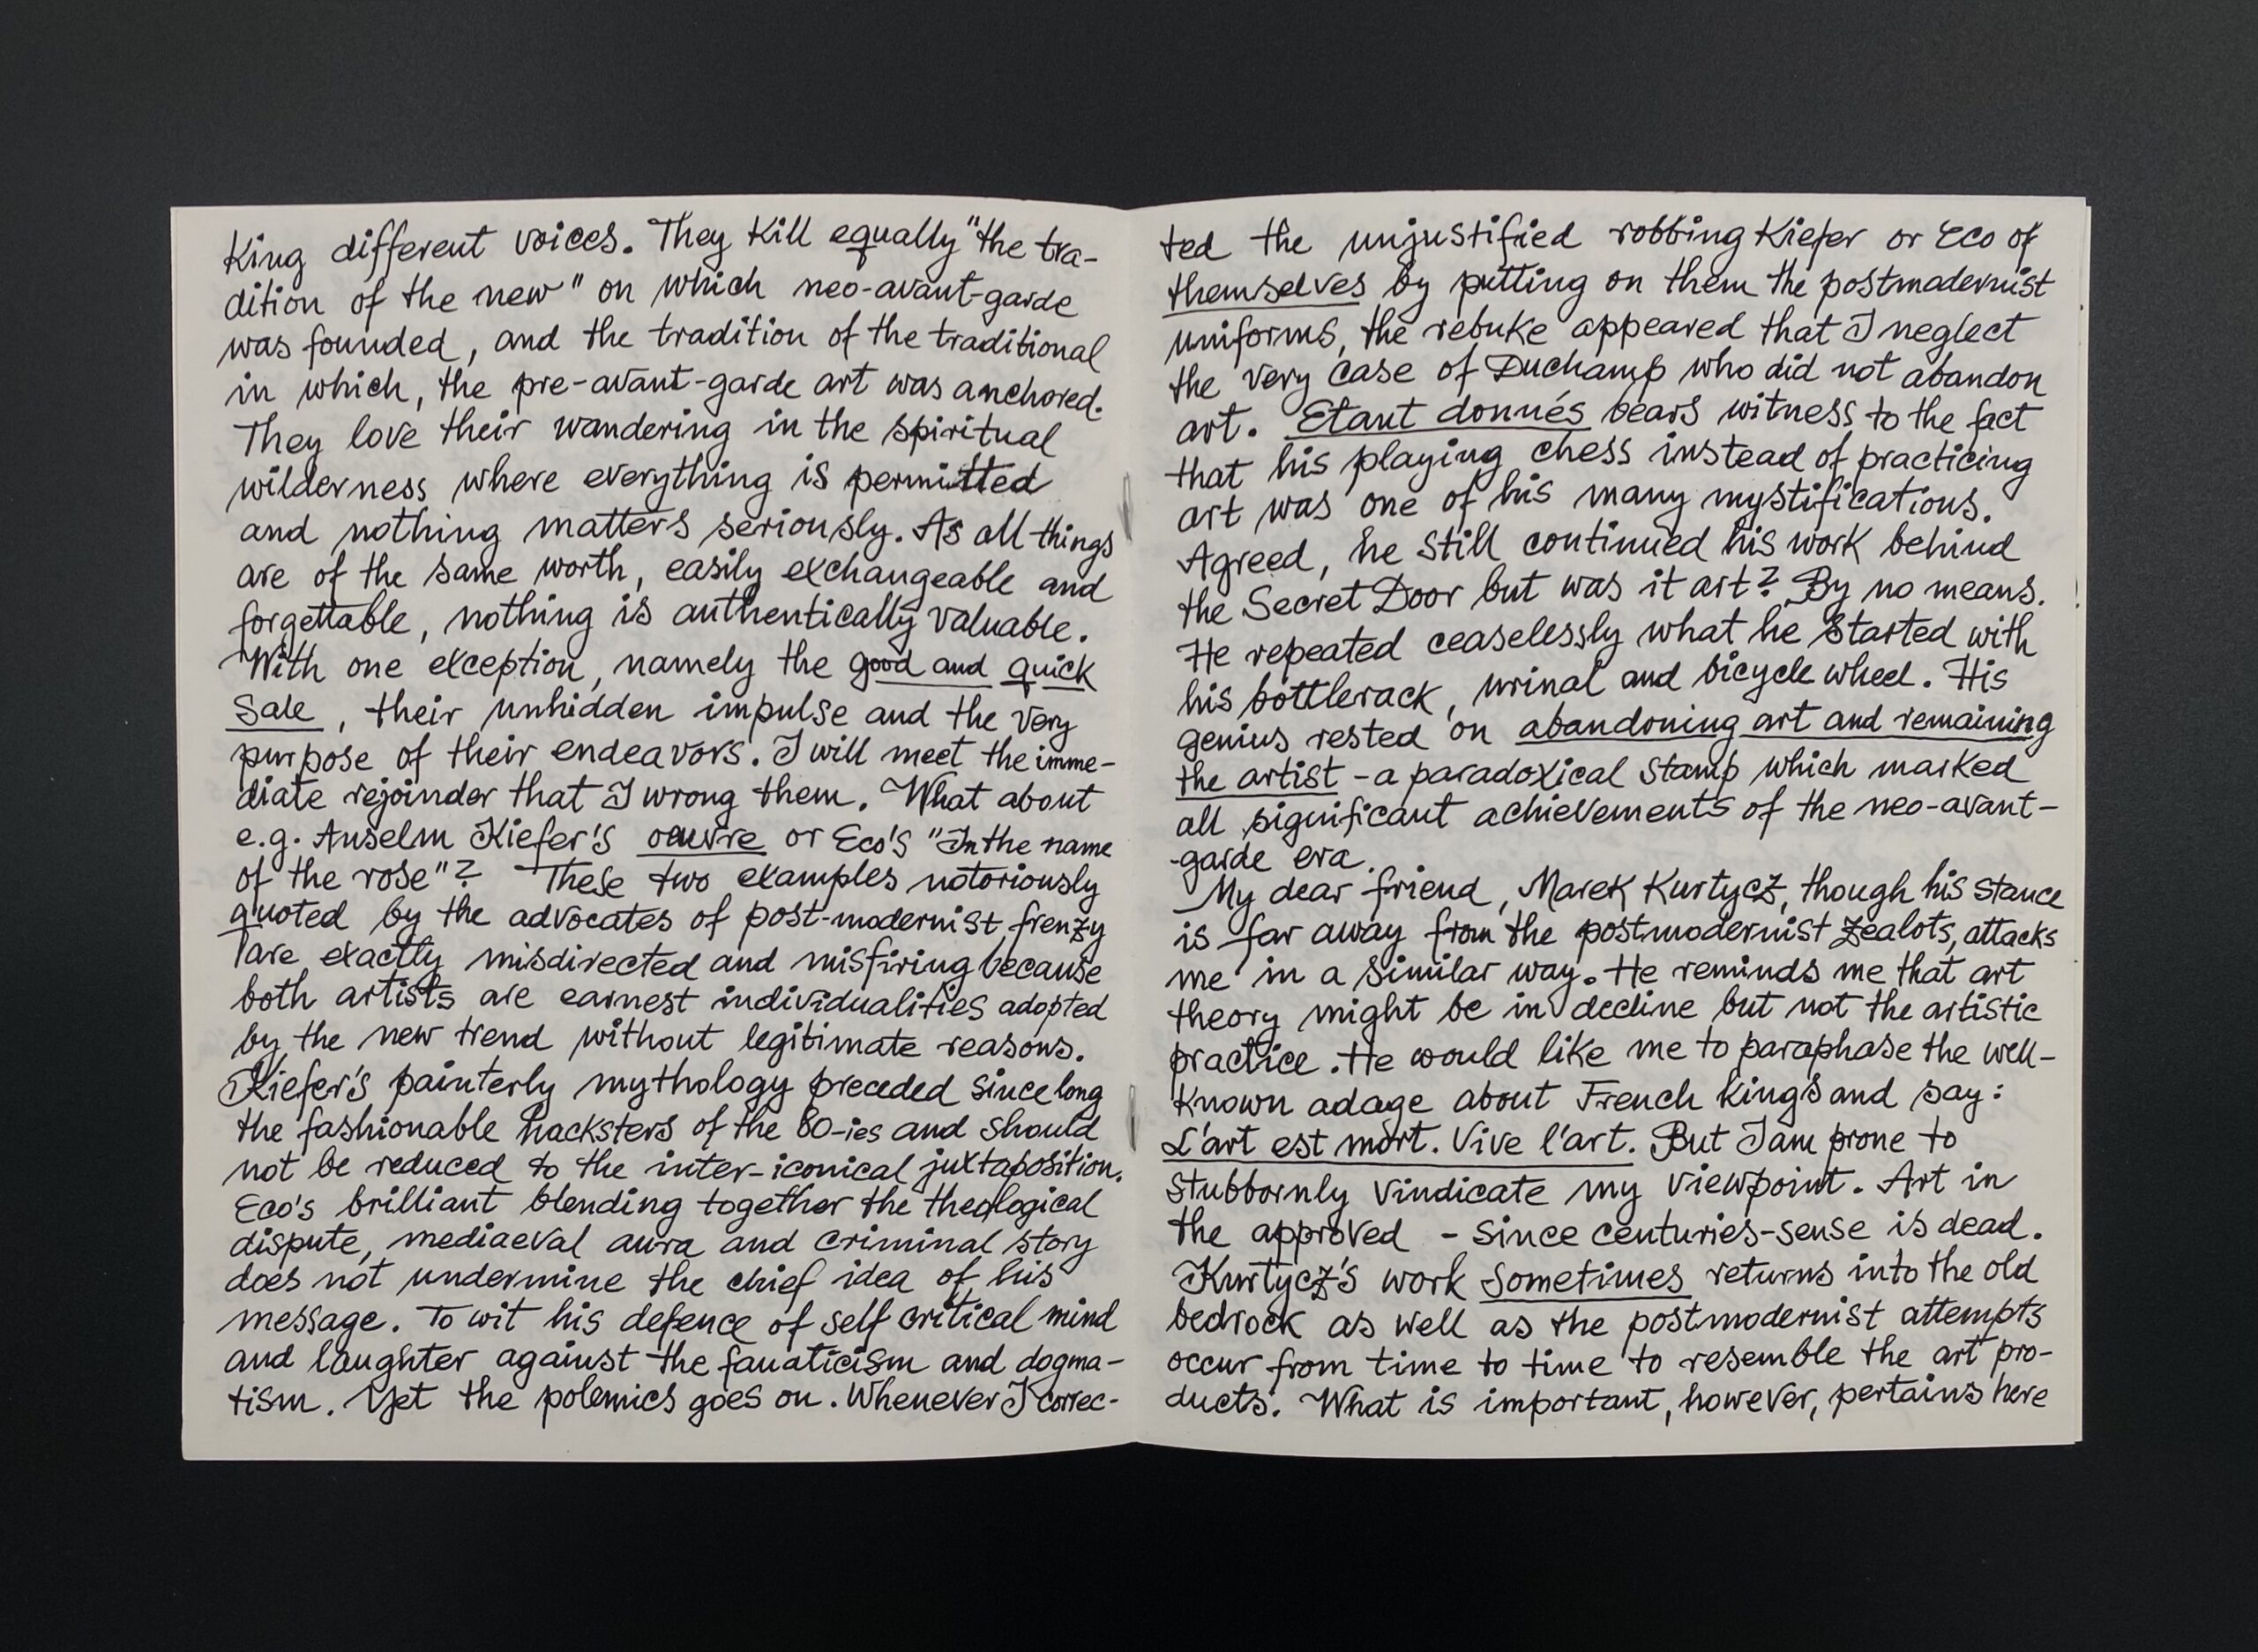 King different voices. They kill equally "the tra-
dition of the new" on which neo-avant-garde
was founded, and the tradition of the traditional
in which, the pre-avant-garde art was anchored.
They love their wandering in the spiritual
wilderness where everything is permitted
and nothing matters seriously. As all things
are of the same worth, easily exchangeable and
forgettable, nothing is authentically valuable.
With one exception, namely the good and quick
sale, their unhidden impulse and the very
purpose of their endeavors. I will meet the imme-
diate rejoinder that I wrong them. What about
e.g. Anselm Kiefer's oeuvre or Eco's "In the name
of the rose"? These two examples notoriously
quoted by the advocates of post-modernist frenzy
are exactly misdirected and misfiring because
both artists are earnest individualities adopted
by the new trend without legitimate reasons.
Kiefer's painterly mythology preceded since long
the fashionable hacksters of the 80-ies and should
not be reduced to the inter-iconical juxtaposition.
Eco's brilliant blending together the theological
dispute, mediaeval aura and criminal story
does not undermine the chief idea of his
message. To wit his defence of self critical mind
and laughter against the fanaticism and dogma-
tism. Yet the polemics goes on. Whenever I correc-
ted the unjustified robbing Kiefer or Eco of
themselves by putting on them the postmodernist
uniforms, the rebuke appeared that I neglect
the very case of Duchamp who did not abandon
art. Etant donnés bears witness to the fact
that his playing chess instead of practicing
art was one of his many mystifications.
Agreed, he still continued his work behind
the Secret Door but was it art? By no means.
He repeated ceaselessly what he started with
his bottlerack, urinal and bicycle wheel. His
genius rested on abandoning art and remaining
the artist - a paradoxical stamp which marked
all significant achievements of the neo-avant-
-garde era.
My dear friend, Marek Kurtycz, though his stance
is far away from the postmodernist zealots, attacks
me in a similar way. He reminds me that art
theory might be in decline but not the artistic
practice. He would like me to paraphase the well-
known adage about French kings and say:
L'art est mort. Vive l'art. But I am prone to
stubbornly vindicate my viewpoint. Art in
the approved - since centuries-sense is dead.
Kurtycz's work sometimes returns into the old
bedrock as well as the postmodernist attempts
occur from time to time to resemble the art pro-
ducts. What is important, however, pertains here